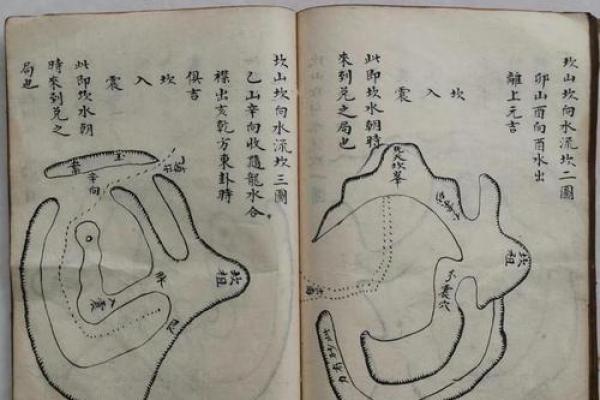 坎山坎向水流坎二圖
卯山酉向酉水出
離上元吉
坎入震
此即坎水朝時
來到兌之局也
坎峯
坎祖
震穴
坎山坎向水流坎三圖
乙山辛向收隨龍水合
襟出亥乾方東卦時
俱吉
坎入震
此即坎水朝
時來到兌之
局也
玉案
辛向
坎祖
入震